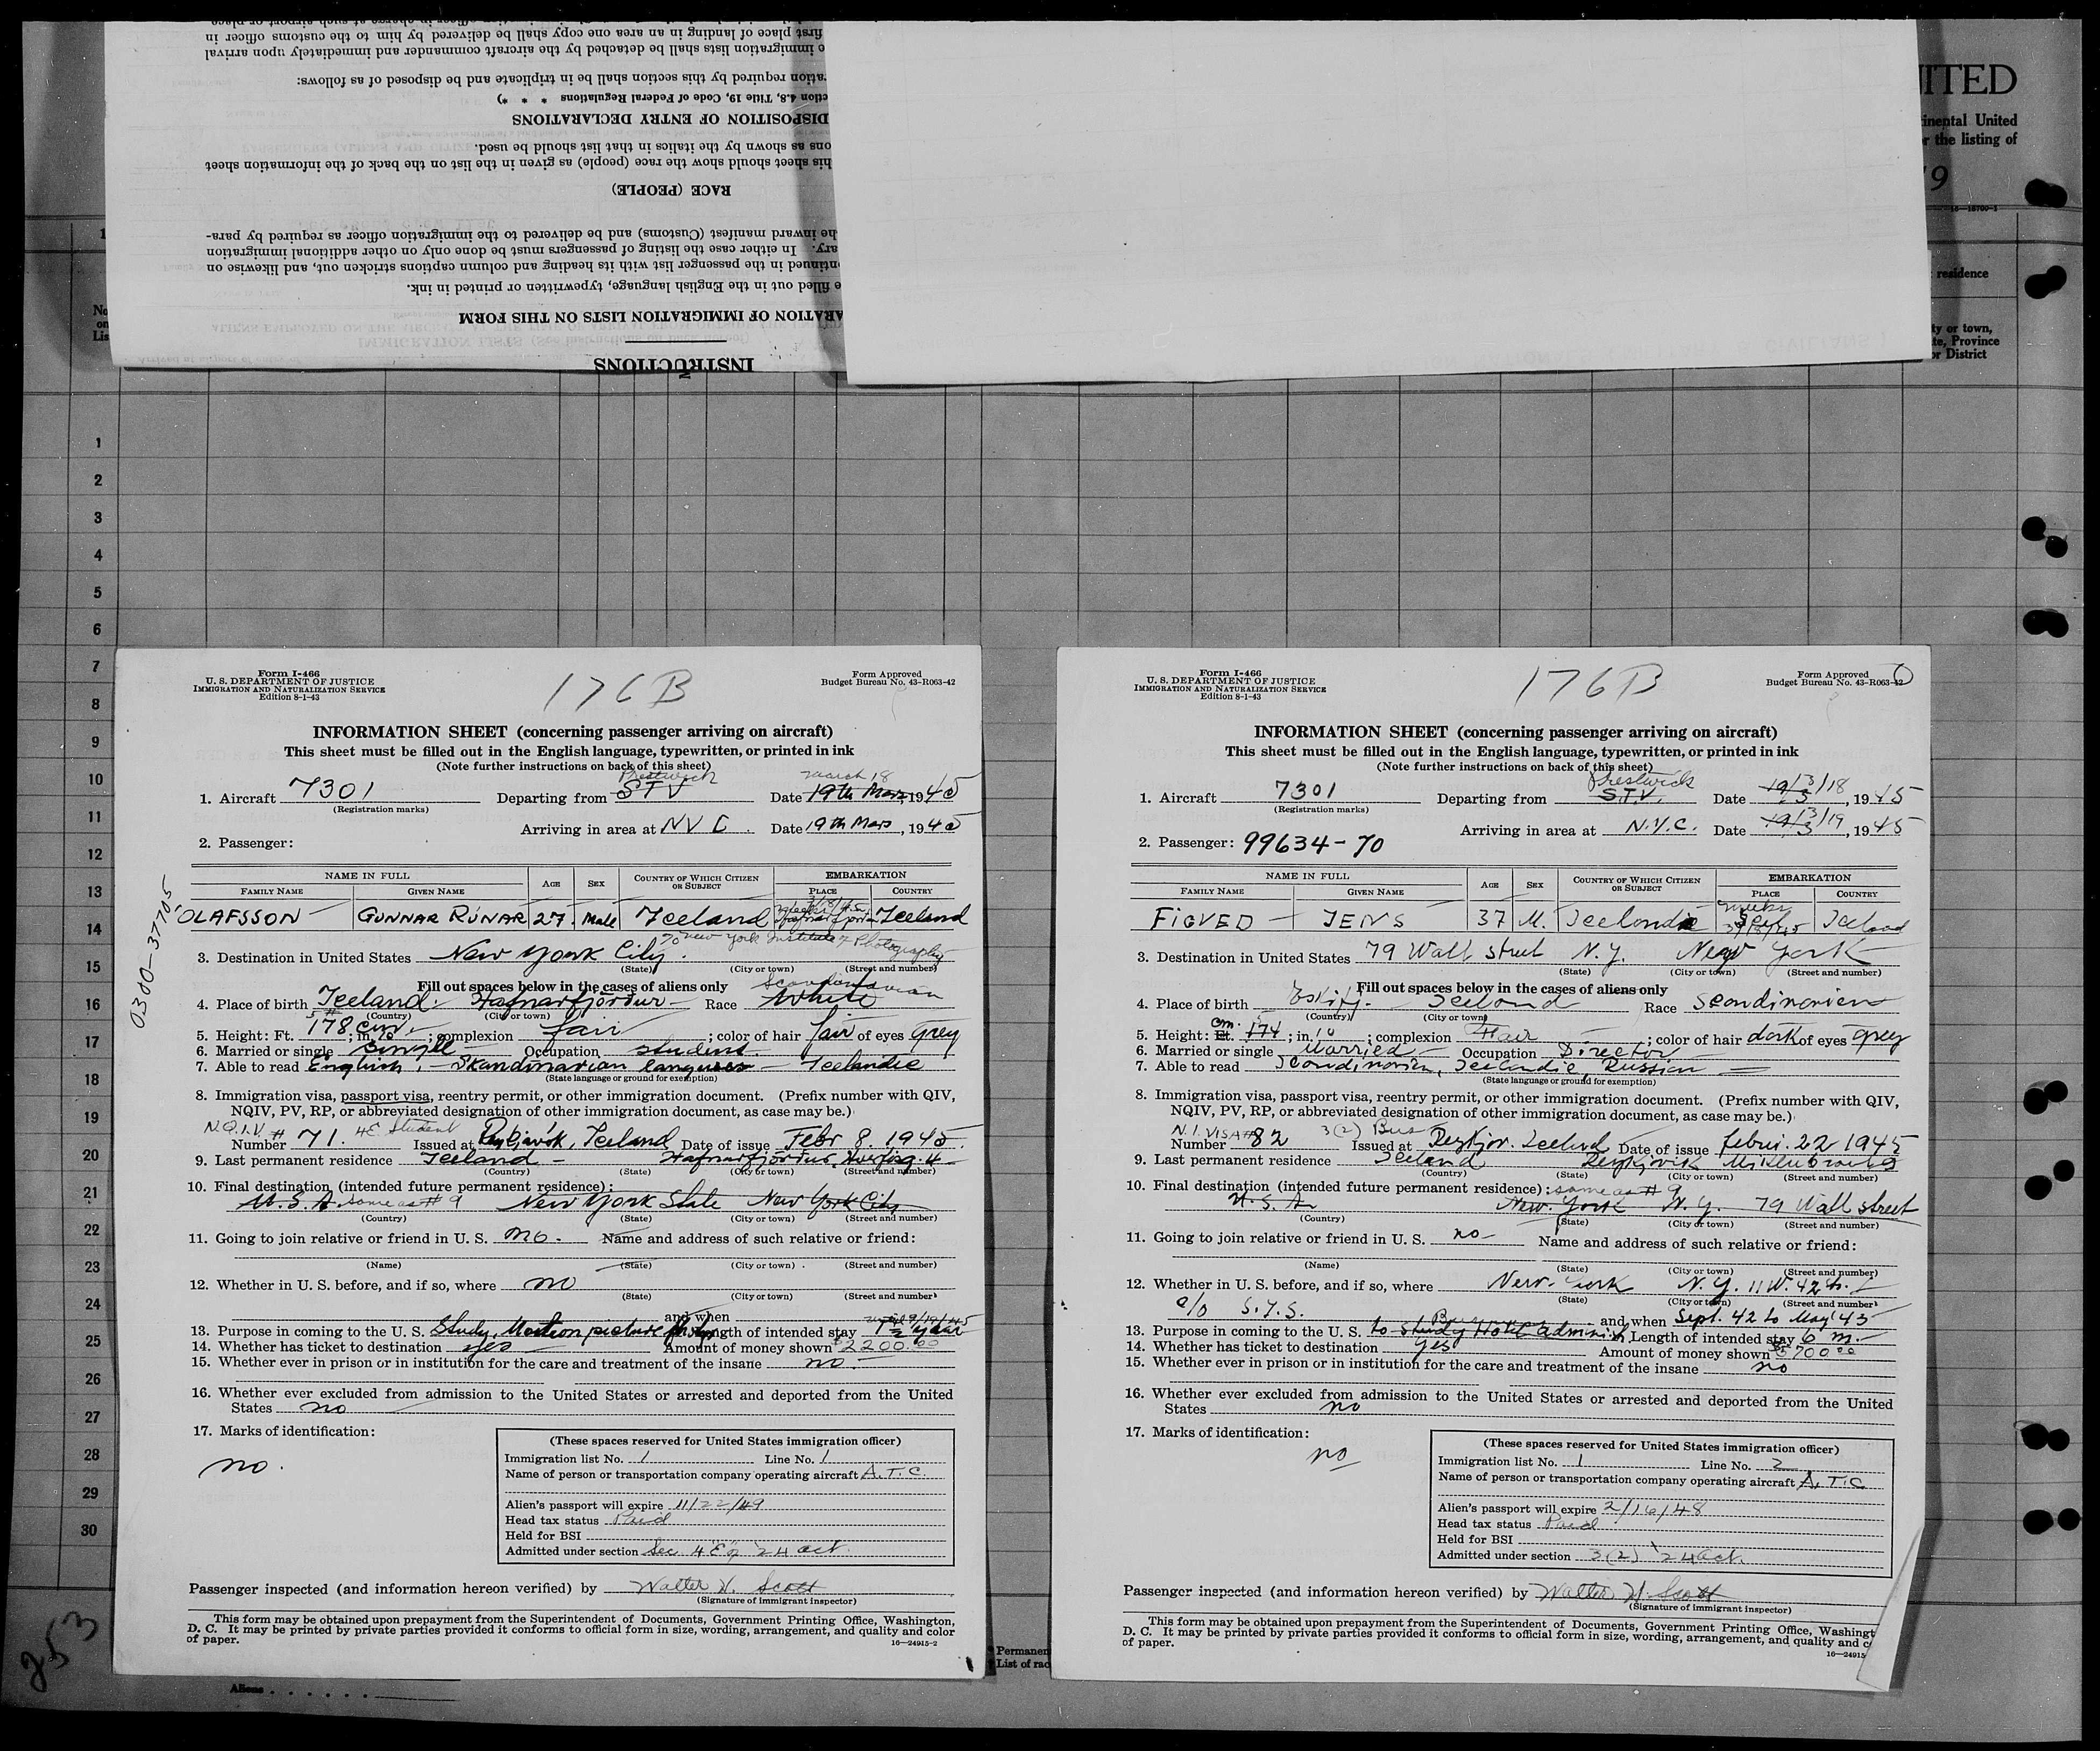 first place of landing in an area one copy shall be delivered by him to the customs officer in
immigration lists shall be detached by the aircraft commander and immediately upon arrival
required by this section shall be in triplicate and be disposed of as follows:
4.8, Title 19, Code of Federal Regulations * * *)
DISPOSITION OF ENTRY DECLARATIONS
as shown by the italics in that list should be used.
sheet should show the race (people) as given in the list on the back of the information sheet
RACE (PEOPLE)
inward manifest (Customs) and be delivered to the immigration officer as required by para-
In either case the listing of passengers must be done only on other additional immigration
in the passenger list with its heading and column captions stricken out, and likewise on
filled out in the English language, typewritten or printed in ink.
OF IMMIGRATION LISTS ON THIS FORM
INSTRUCTIONS
ITED
United
the listing of
9
residence
or town,
Province
or District
No
on
Lis
1
2
3
4
5
6
7
8
9
10
11
12
13
14
15
16
17
18
19
20
21
22
23
24
25
26
27
28
29
30
253
0300-37705
Form I-466
U. S. DEPARTMENT OF JUSTICE
IMMIGRATION AND NATURALIZATION SERVICE
Edition 8-1-43
176B
Form Approved
Budget Bureau No. 43-R063-42
INFORMATION SHEET (concerning passenger arriving on aircraft)
This sheet must be filled out in the English language, typewritten, or printed in ink
(Note further instructions on back of this sheet)
Prestwick March 18
1. Aircraft 7301 Departing from STV Date 19th Mars 1945
(Registration marks)
Arriving in area at NYC. Date 19th Mars, 1945
2. Passenger:
NAME IN FULL AGE SEX COUNTRY OF WHICH CITIZEN OR SUBJECT EMBARKATION
FAMILY NAME GIVEN NAME PLACE COUNTRY
OLAFSSON GUNNAR RÚNAR 27. Male Iceland Iceland
% New York Institute of Photography
3. Destination in United States New York City.
(State) (City or town) (Street and number)
Fill out spaces below in the cases of aliens only
Scandinavian
4. Place of birth Iceland. Hafnarfjördur Race White
(Country) (City or town)
5. Height: Ft. 178 cm.; in. 10; complexion fair; color of hair fair of eyes Grey
6. Married or single single Occupation student
7. Able to read English, Skandinavian Icelandic
(State language or ground for exemption)
8. Immigration visa, passport visa, reentry permit, or other immigration document. (Prefix number with QIV,
NQIV, PV, RP, or abbreviated designation of other immigration document, as case may be.)
N.Q.I.V. # 4E Student
Number 71. Issued at Reykjavik, Iceland Date of issue Febr 8. 1945.
9. Last permanent residence Iceland Hafnarfjördur,
(Country) (State) (City or town) (Street and number)
10. Final destination (intended future permanent residence):
U.S.A. same as # 9 New York State New York City
(Country) (State) (City or town) (Street and number)
11. Going to join relative or friend in U. S. no. Name and address of such relative or friend:
(Name) (State) (City or town) (Street and number)
12. Whether in U. S. before, and if so, where no
(State) (City or town) (Street and number)
and when
13. Purpose in coming to the U. S. Study, Motion picture Length of intended stay 1½ year
14. Whether has ticket to destination yes Amount of money shown $2200.00
15. Whether ever in prison or in institution for the care and treatment of the insane no.
16. Whether ever excluded from admission to the United States or arrested and deported from the United
States no
17. Marks of identification:
no.
(These spaces reserved for United States immigration officer)
Immigration list No. 1 Line No. 1
Name of person or transportation company operating aircraft A.T.C.
Alien's passport will expire 11/22/49
Head tax status Paid
Held for BSI
Admitted under section Sec 4E of 24 act
Passenger inspected (and information hereon verified) by Walter H. Scott
(Signature of immigrant inspector)
This form may be obtained upon prepayment from the Superintendent of Documents, Government Printing Office, Washington,
D. C. It may be printed by private parties provided it conforms to official form in size, wording, arrangement, and quality and color
of paper.
16—24915-2
Form I-466
U. S. DEPARTMENT OF JUSTICE
IMMIGRATION AND NATURALIZATION SERVICE
Edition 8-1-43
176B
Form Approved
Budget Bureau No. 43-R063-42
INFORMATION SHEET (concerning passenger arriving on aircraft)
This sheet must be filled out in the English language, typewritten, or printed in ink
(Note further instructions on back of this sheet)
Prestwick 3/18
1. Aircraft 7301 Departing from S.T.V. Date 19/3, 1945
(Registration marks)
Arriving in area at N.Y.C. Date 19/3 3/19, 1945
2. Passenger: 99634-70
NAME IN FULL AGE SEX COUNTRY OF WHICH CITIZEN OR SUBJECT EMBARKATION
FAMILY NAME GIVEN NAME PLACE COUNTRY
FIGVED JENS 37 M. Icelandic 3/18/45 Iceland
3. Destination in United States 79 Wall street N.Y. New York
(State) (City or town) (Street and number)
Fill out spaces below in the cases of aliens only
4. Place of birth Eskifj. Iceland Race Scandinavien
(Country) (City or town)
5. Height: Ft. cm. 174; in. 10; complexion Fair; color of hair dark of eyes grey
6. Married or single Married Occupation Director
7. Able to read Scandinavien, Icelandic, Russian
(State language or ground for exemption)
8. Immigration visa, passport visa, reentry permit, or other immigration document. (Prefix number with QIV,
NQIV, PV, RP, or abbreviated designation of other immigration document, as case may be.)
N.I. VISA # 3(2) Bus
Number 82 Issued at Reykjav. Iceland Date of issue febru. 22 1945
9. Last permanent residence Iceland Reykjavik
(Country) (State) (City or town) (Street and number)
10. Final destination (intended future permanent residence): same as # 9
U.S.A New York N.Y. 79 Wall street
(Country) (State) (City or town) (Street and number)
11. Going to join relative or friend in U. S. no Name and address of such relative or friend:
(Name) (State) (City or town) (Street and number)
12. Whether in U. S. before, and if so, where New-York N.Y. 11 W. 42
(State) (City or town) (Street and number)
c/o S.I.S. and when Sept. 42 to May 43
13. Purpose in coming to the U. S. to study Hotel Length of intended stay 6 m.
14. Whether has ticket to destination yes Amount of money shown $700.00
15. Whether ever in prison or in institution for the care and treatment of the insane no
16. Whether ever excluded from admission to the United States or arrested and deported from the United
States no
17. Marks of identification:
no
(These spaces reserved for United States immigration officer)
Immigration list No. 1 Line No. 2
Name of person or transportation company operating aircraft A.T.C
Alien's passport will expire 2/16/48
Head tax status Paid
Held for BSI
Admitted under section 3(2) '24 act.
Passenger inspected (and information hereon verified) by Walter H. Scott
(Signature of immigrant inspector)
This form may be obtained upon prepayment from the Superintendent of Documents, Government Printing Office, Washingt
D. C. It may be printed by private parties provided it conforms to official form in size, wording, arrangement, and quality and c
of paper.
16—24915
Permanen
List of rac
Aliens